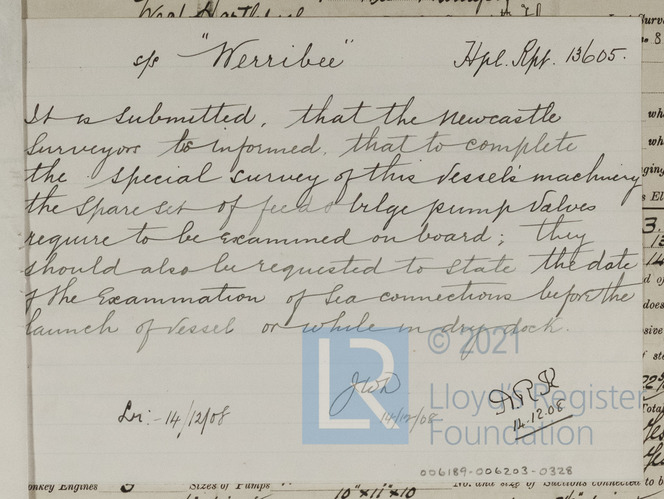 West Hartlepool
s/s "Werribee" Hpl. Rpt. 13605.
It is submitted, that the Newcastle
Surveyors be informed, that to complete
the special survey of this vessel's machinery
the spare set of feed & bilge pump valves
require to be examined on board; they
should also be requested to state the date
of the examination of sea connections before the
launch of vessel or while in dry dock.
© 2021
LR
Lloyd's Register
Foundation
JWD
14/12/08
A.R.R
14.12.08
Lr:- 14/12/08
006189-006203-0328
onkey Engines 3 Sizes of Pumps
10"x11"x10
No. and size of Suctions connected to b